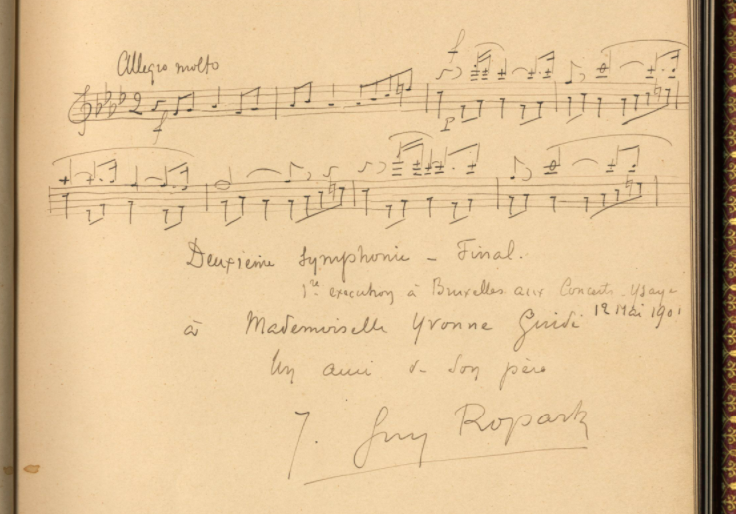 Allegro molto
f
f
P
Deuxième Symphonie - Final.
1re execution à Bruxelles aux Concerts Ysaye
12 Mai 1901
à Mademoiselle Yvonne Guidé
Un ami de son père
J. Guy Ropartz